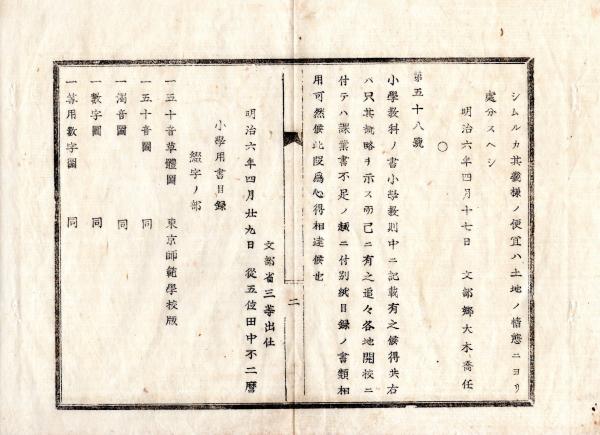 シムルカ其義様ノ便宜ハ土地ノ情態ニヨリ
處分スヘシ
明治六年四月十七日 文部卿大木喬任
〇
第五十八號
小學教科ノ書小學教則中ニ記載有之候得共右
ハ只其概略ヲ示ス而已ニ有之追々各地開校ニ
付テハ課業書不足ノ趣ニ付別紙目録ノ書類相
用可然候此段爲心得相達候也
文部省三等出仕
明治六年四月廿九日 從五位田中不二麿
二
小學用書目録
綴字ノ部
一五十音草體圖 東京師範學校版
一五十音圖 同
一濁音圖 同
一數字圖 同
一算用數字圖 同